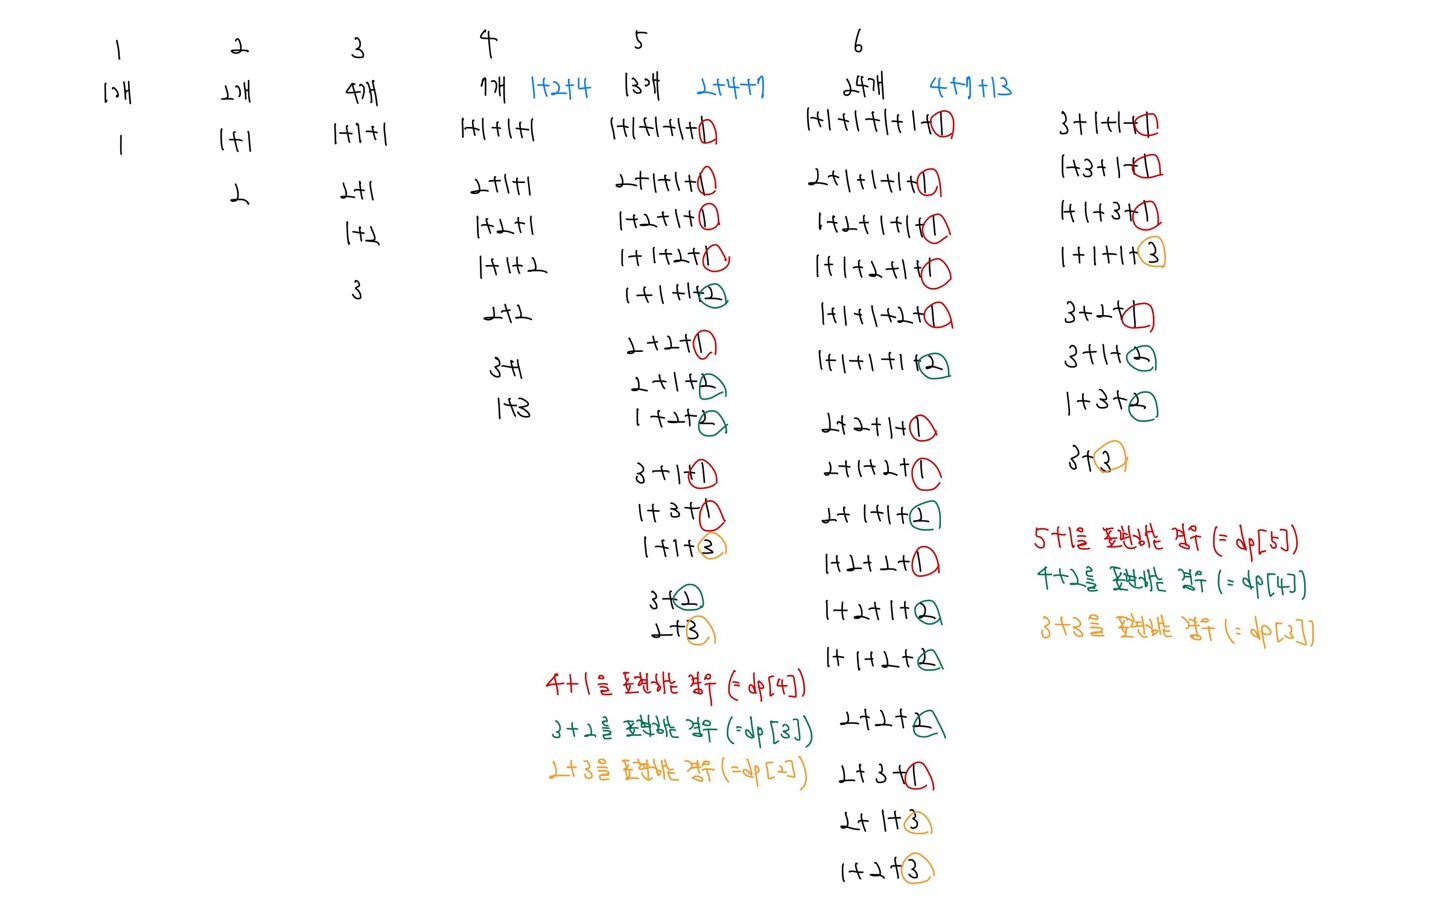 1
1개
1
2
2개
1+1
2
3
4개
1+1+1
2+1
1+2
3
4
7개 1+2+4
1+1+1+1
2+1+1
1+2+1
1+1+2
2+2
3+1
1+3
5
13개 2+4+7
1+1+1+1+1
2+1+1+1
1+2+1+1
1+1+2+1
1+1+1+2
2+2+1
2+1+2
1+2+2
3+1+1
1+3+1
1+1+3
3+2
2+3
4+1을 표현하는 경우 (= dp[4])
3+2를 표현하는 경우 (=dp[3])
2+3을 표현하는 경우 (=dp[2])
6
24개 4+7+13
1+1+1+1+1+1
2+1+1+1+1
1+2+1+1+1
1+1+2+1+1
1+1+1+2+1
1+1+1+1+2
2+2+1+1
2+1+2+1
2+1+1+2
1+2+2+1
1+2+1+2
1+1+2+2
2+2+2
2+3+1
2+1+3
1+2+3
3+1+1+1
1+3+1+1
1+1+3+1
1+1+1+3
3+2+1
3+1+2
1+3+2
3+3
5+1을 표현하는 경우 (= dp[5])
4+2를 표현하는 경우 (=dp[4])
3+3을 표현하는 경우 (= dp[3])